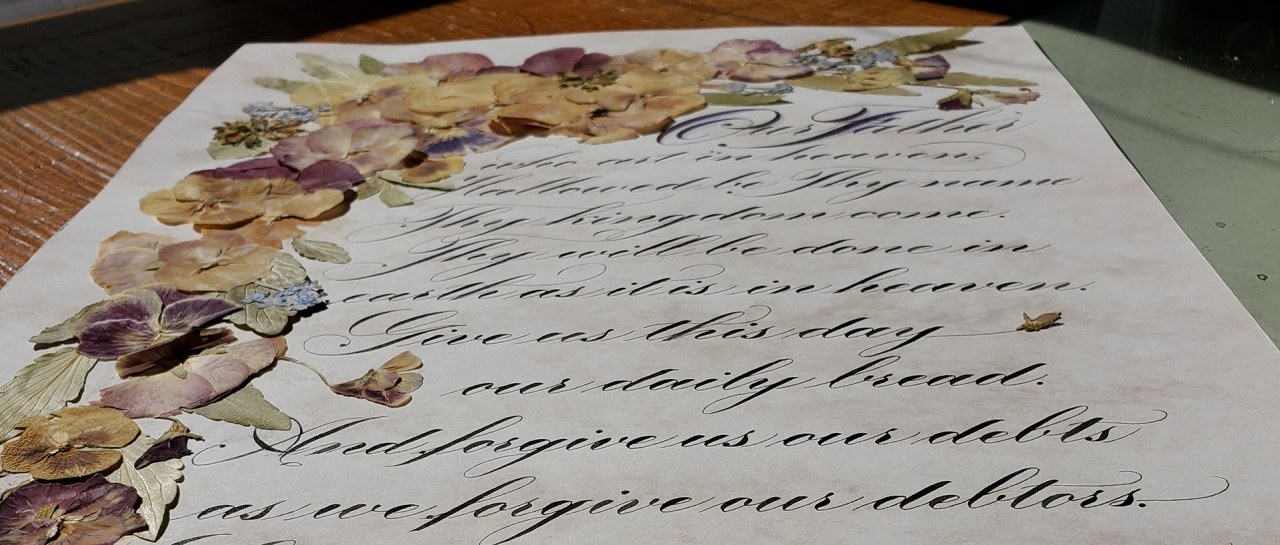 Our Father
who art in heaven,
Hallowed be Thy name
Thy kingdom come.
Thy will be done in
earth as it is in heaven.
Give us this day
our daily bread.
And forgive us our debts
as we forgive our debtors.